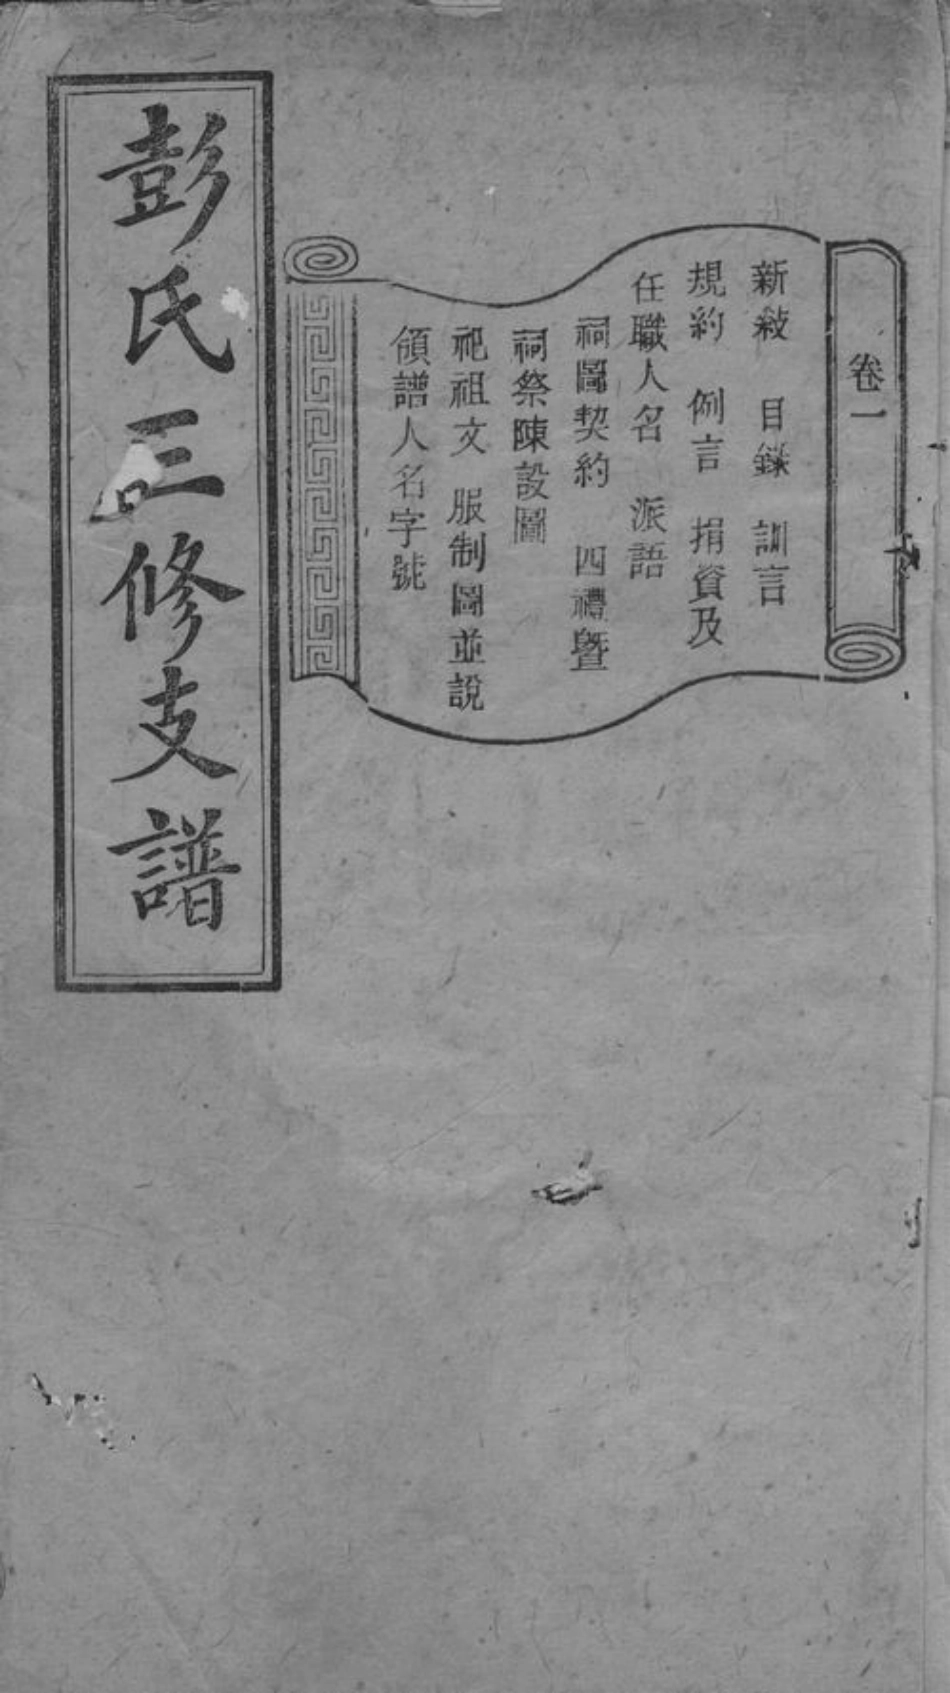 卷一
新敍 目錄 訓言
規約 例言 捐資及
任職人名 派語
祠圖契約 四禮暨
祠祭陳設圖
祀祖文 服制圖並說
領譜人名字號
彭氏三修支譜